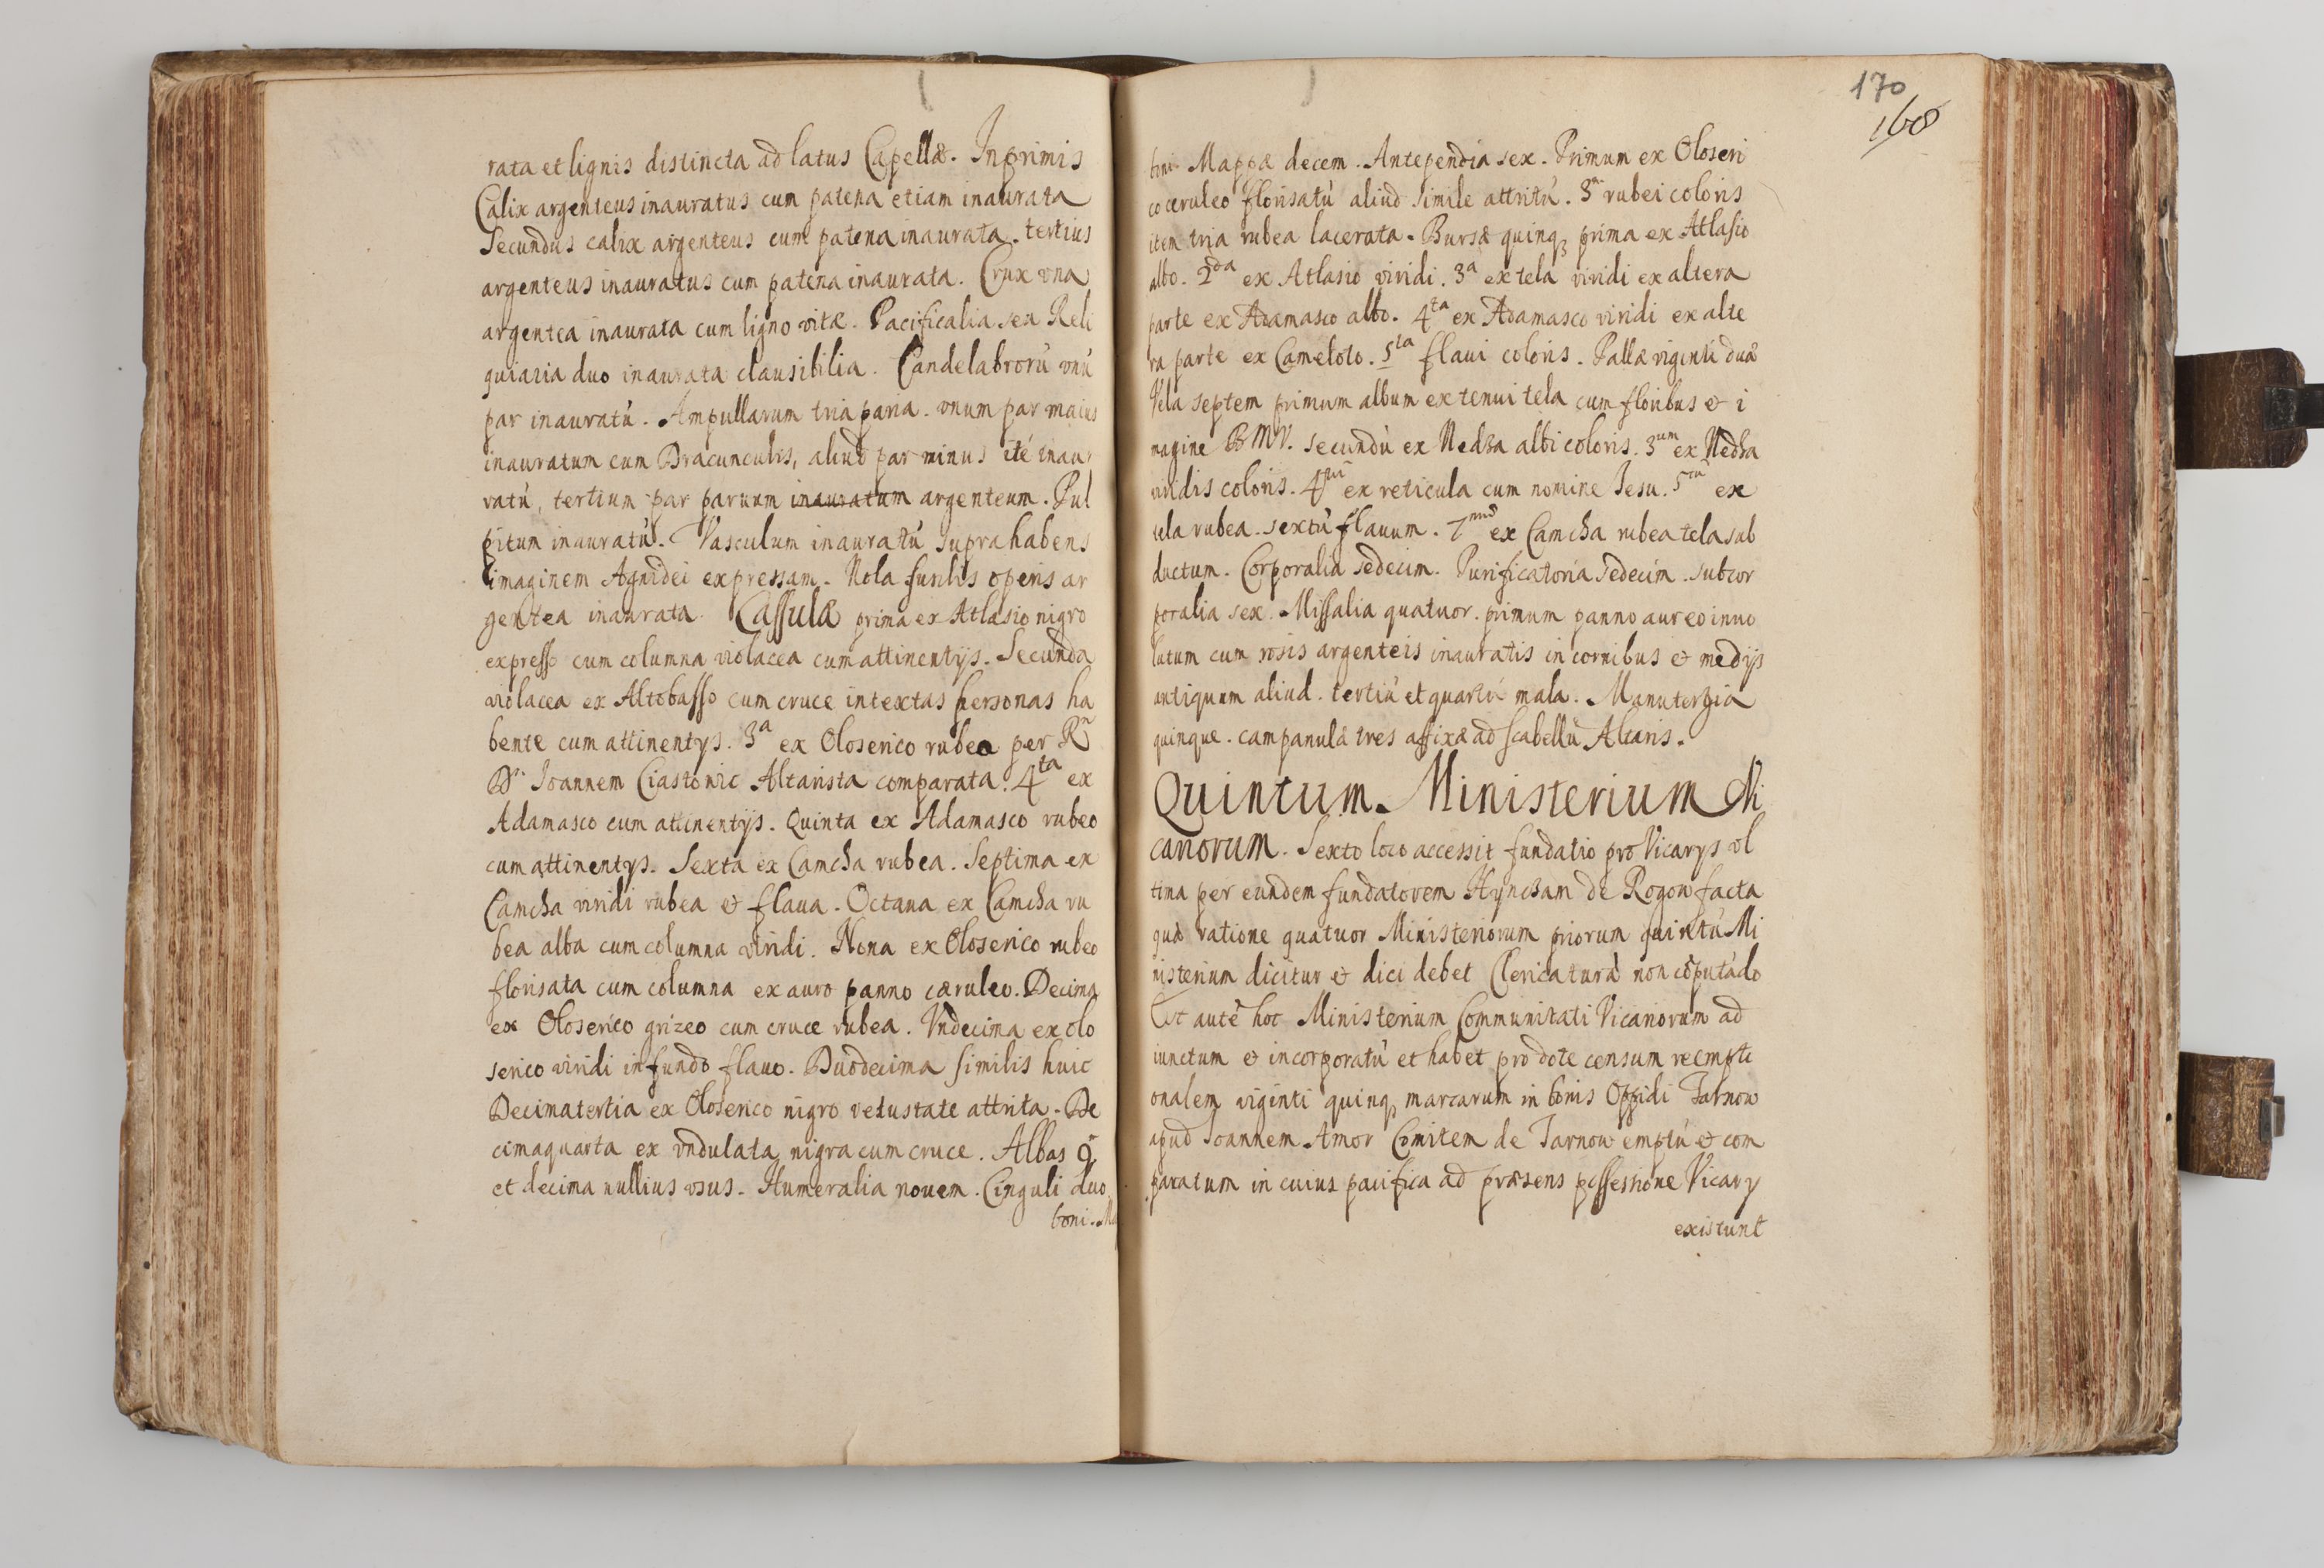 rata et lignis distincta ad latus Capellæ. Inprimis
Calix argenteus inauratus cum patena etiam inaurata
Secundus calix argenteus cum patena inaurata. tertius
argenteus inauratus cum patena inaurata. Crux vna
argentea inaurata cum ligno vitæ. Pacificalia seu Reli
quiaria duo inaurata clausibilia. Candelabrorú vnú
par inauratú. Ampullarum tria paria. vnum par maius
inauratum cum Dracunculis, aliud par minus ité inau
ratú, tertium par paruum inauratum argenteum. Pul
pitum inauratú. Vasculum inauratú supra habens
imaginem Agnidei expressam. Nola fusilis operis ar
gentea inaurata. Cassulæ prima ex Atlasio nigro
expresso cum columna violacea cum attinentijs. Secunda
violacea ex Altobasso cum cruce intextas personas ha
bente cum attinentijs. 3a ex Oloserico rubeo per Rn
D. Ioannem Ciastonic Altarista comparata. 4ta ex
Adamasco cum attinentijs. Quinta ex Adamasco rubeo
cum attinentijs. Sexta ex Camcha rubea. Septima ex
Camcha viridi rubea & flaua. Octaua ex Camcha ru
bea alba cum columna viridi. Nona ex Oloserico rubeo
florisata cum columna ex auro panno cæruleo. Decima
ex Oloserico grizeo cum cruce rubea. Vndecima ex olo
serico viridi in fundo flauo. Duodecima similis huic
Decimatertia ex Oloserico nigro vetustate attrita. De
cimaquarta ex vndulata nigra cum cruce. Albas 9
et decima nullius vsus. Humeralia nouem. Cinguli duo
boni. Ma
170
168
boni Mappæ decem. Antependia sex. Primum ex Oloseri
co ceruleo florisatú aliud simile attritú. 3m rubei coloris
item tria rubea lacerata. Bursæ quinq3 prima ex Atlasio
albo. 2da ex Atlasio viridi. 3a ex tela viridi ex altera
parte ex Adamasco albo. 4ta ex Adamasco viridi ex alte
ra parte ex Cameloto. 5ta flaui coloris. Pallæ viginti duæ
Vela septem primum album ex tenui tela cum floribus & i
magine BMV. secundú ex Nedza albi coloris. 3um ex Nedza
viridis coloris. 4tú ex reticula cum nomine Iesu. 5tú ex
tela rubea. sextú flauum. 7mú ex Camcha rubea tela sub
ductum. Corporalia sedecim. Purificatoria sedecim. subcor
poralia sex. Missalia quatuor. primum panno aureo inuo
lutum cum rosis argenteis inauratis in cornibus & medijs
antiquum aliud. tertiú et quartú mala. Manutergia
quinque. campanulæ tres affixæ ad scabellú Altaris.
Quintum. Ministerium Vi
canorum. Sexto loco accessit fundatio pro Vicarys vl
tima per eundem fundatorem Hynczam de Rogow facta
quæ ratione quatuor Ministeriorum priorum quintú Mi
nisterium dicitur & dici debet Clericaturá non cóputádo
Est auté hoc Ministerium Communitati Vicariorum ad
iunctum & incorporatú et habet pro dote censum reempti
onalem viginti quinq3 marcarum in bonis Oppidi Tarnow
apud Ioannem Amor Comitem de Tarnow emptú & com
paratum in cuius pacifica ad præsens possessione Vicary
existunt